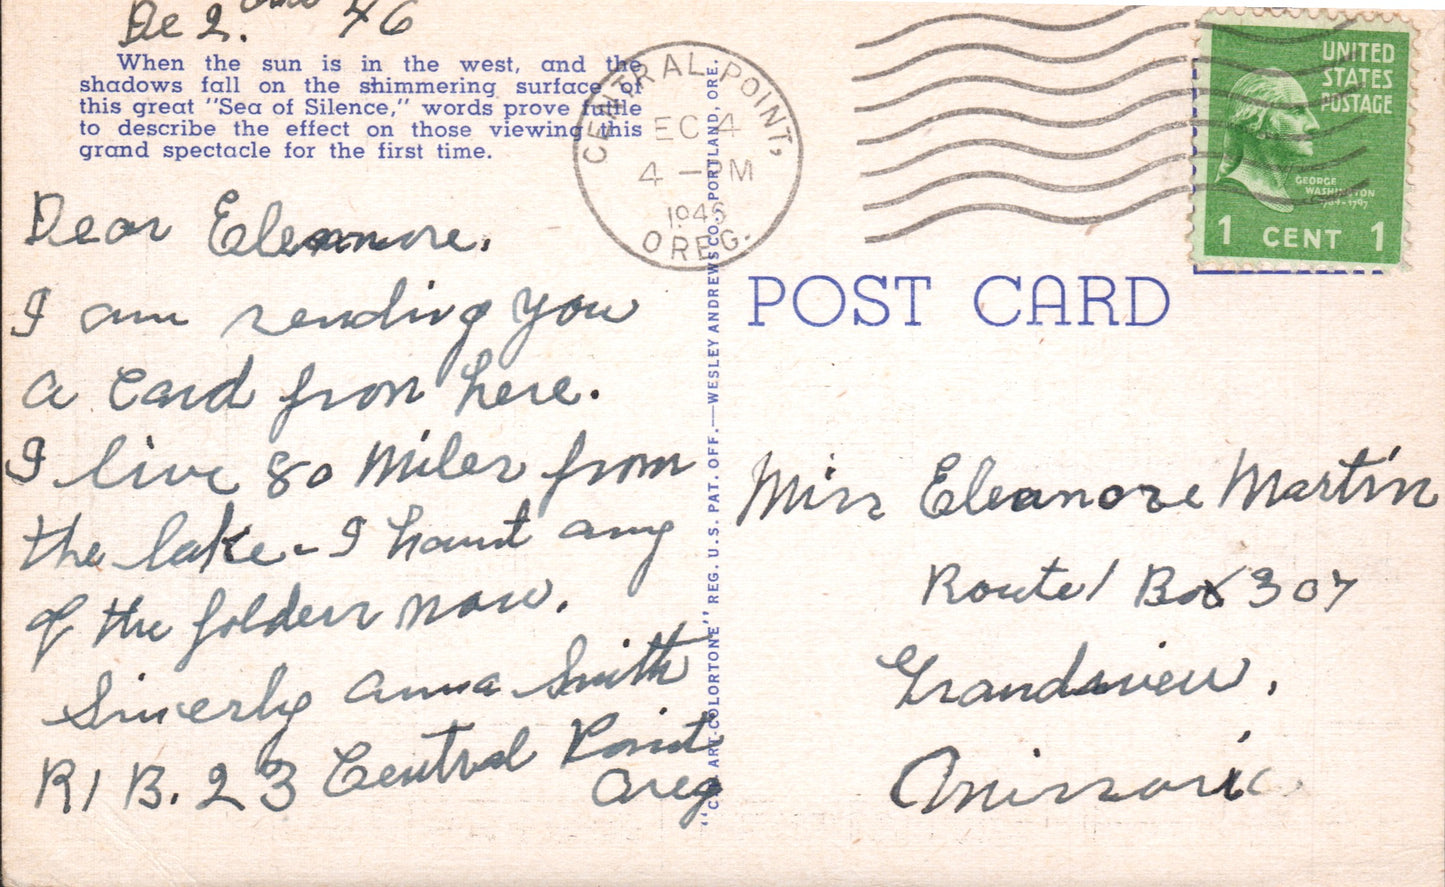 De 2. 46
When the sun is in the west, and the
shadows fall on the shimmering surface of
this great "Sea of Silence," words prove futile
to describe the effect on those viewing this
grand spectacle for the first time.
Dear Eleanore.
I am sending you
a card from here.
I live 80 miles from
the lake - I haunt any
of the folders now.
Sincerly Anna Smith
R1 B. 23 Central Point
Oreg
CENTRAL POINT,
EC 4
4 - PM
1946
OREG.
"C.T. ART-COLORTONE" REG. U.S. PAT. OFF.—WESLEY ANDREWS CO. PORTLAND, ORE.
UNITED
STATES
POSTAGE
GEORGE
WASHINGTON
1789-1797
1 CENT 1
POST CARD
Miss Eleanore Martin
Route 1 Box 307
Grandview.
Missouri